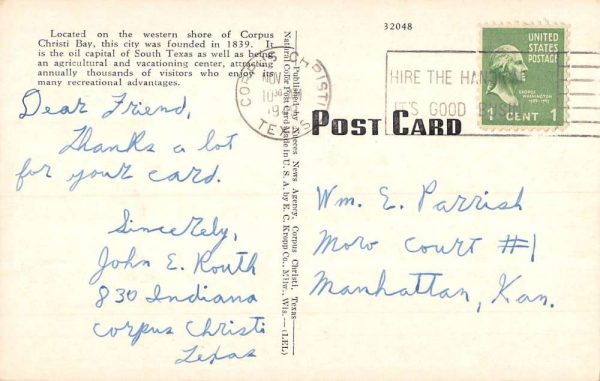 Located on the western shore of Corpus
Christi Bay, this city was founded in 1839. It
is the oil capital of South Texas as well as being
an agricultural and vacationing center, attracting
annually thousands of visitors who enjoy its
many recreational advantages.
Dear Friend,
Thanks a lot
for your card.
Sincerely,
John E. Routh
830 Indiana
Corpus Christi
Texas
Published by Nueces News Agency, Corpus Christi, Texas
Natural Color Post Card Made in U. S. A. by E. C. Kropp Co., Milw., Wis.—(LEL)
32048
CORPUS CHRISTI
NOV
10 30
TEXAS
HIRE THE
IT'S GOOD
UNITED
STATES
POSTAGE
GEORGE
WASHINGTON
1 CENT 1
POST CARD
Wm. E. Parrish
Moro Court #1
Manhattan, Kan.